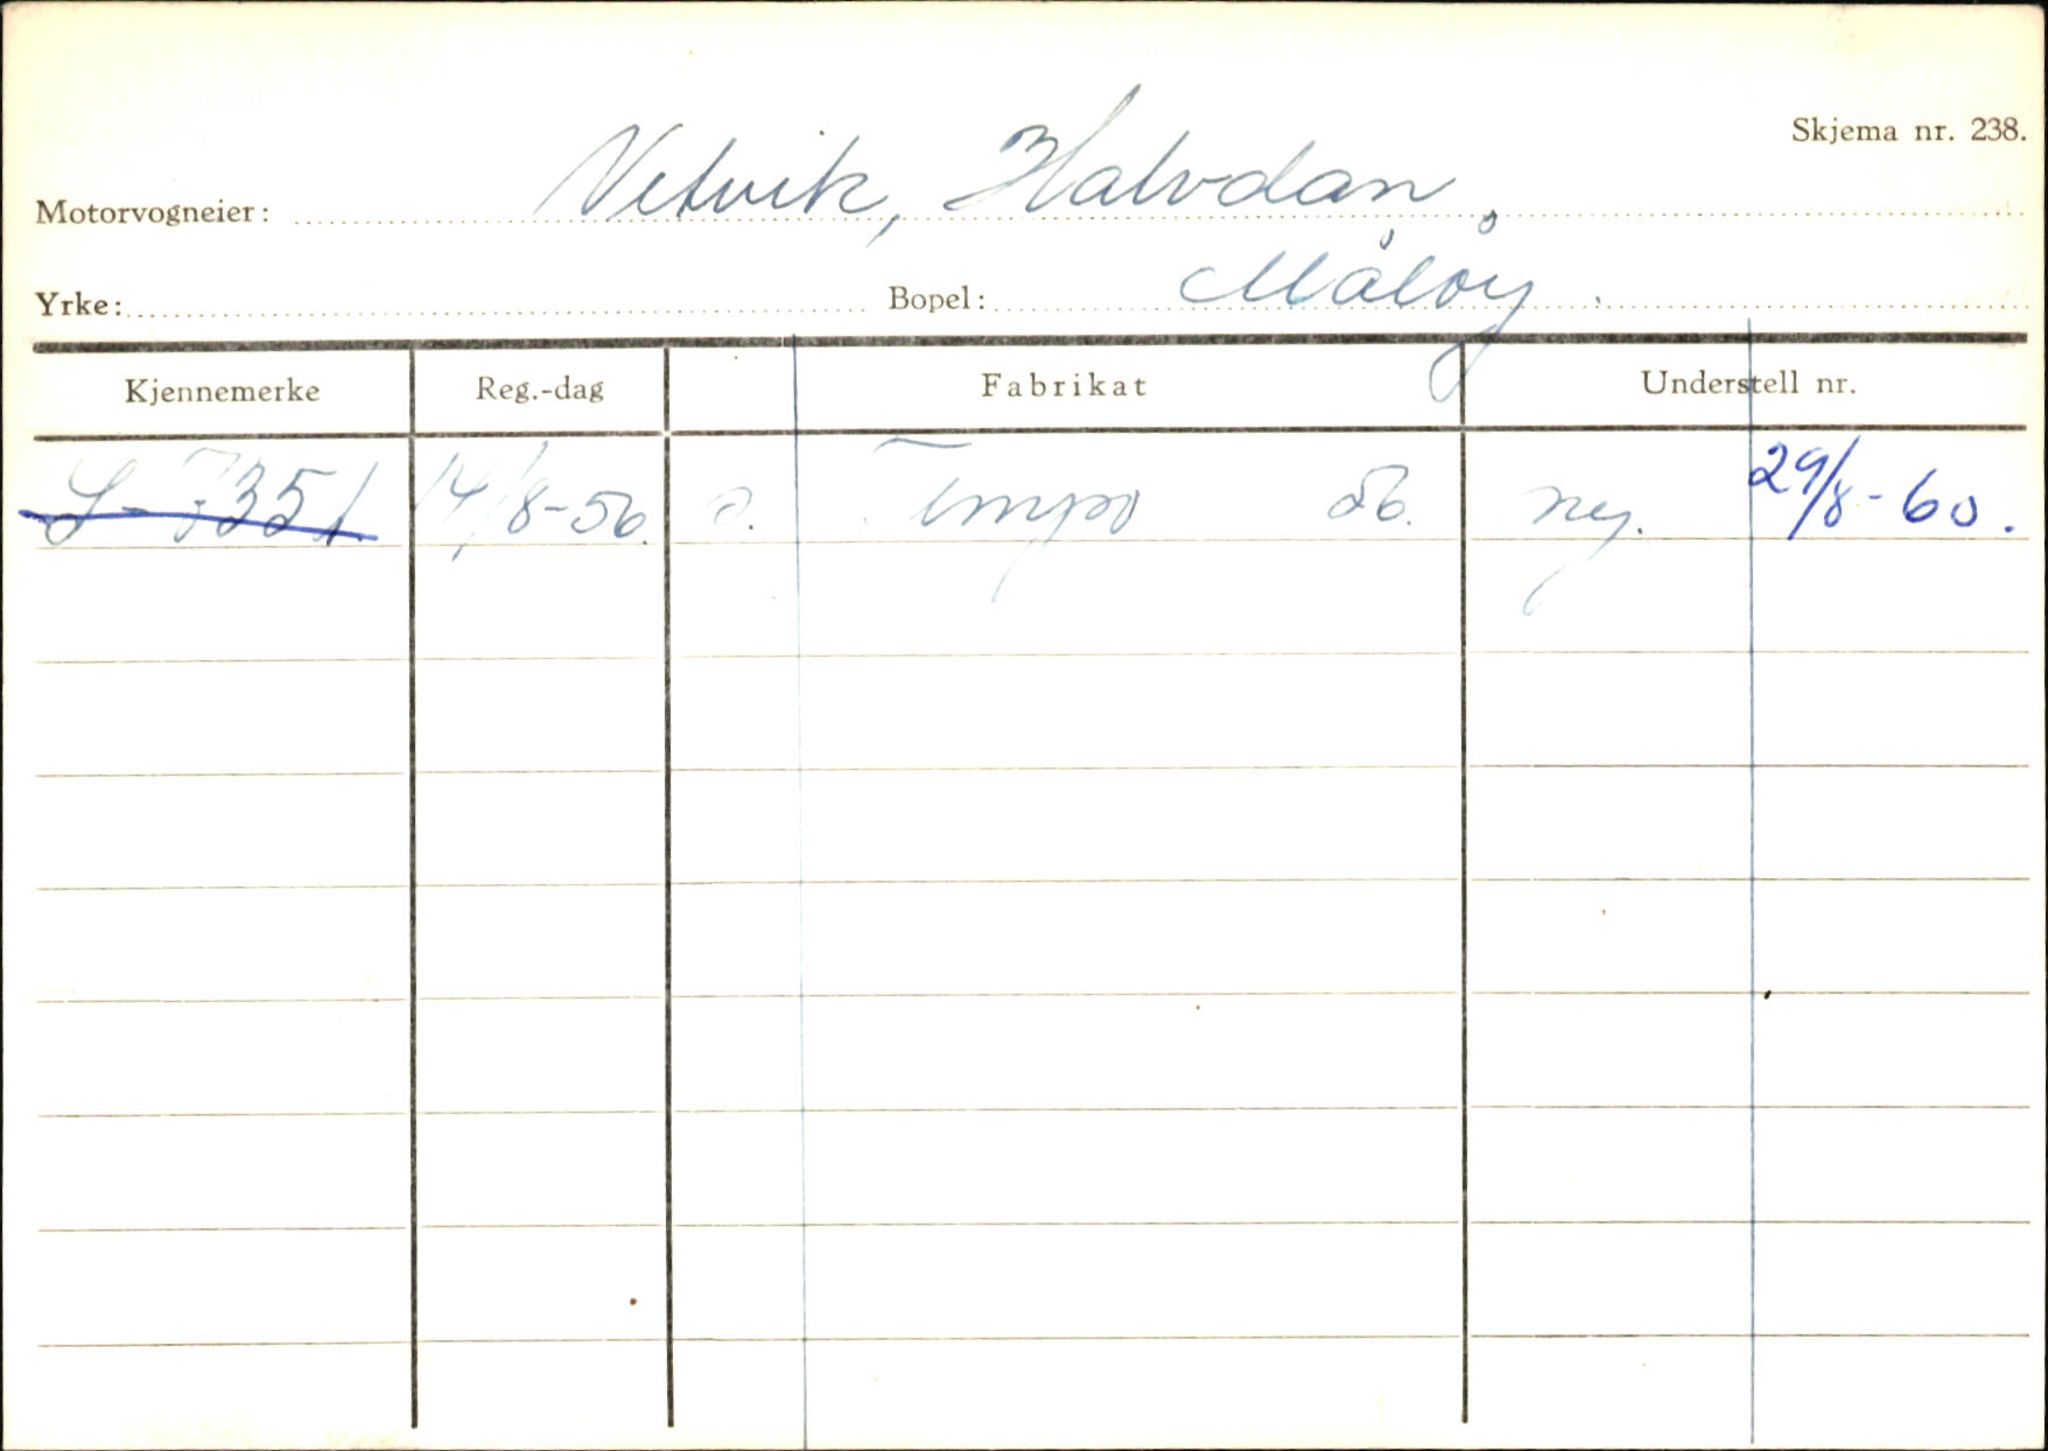 Skjema nr. 238.
Motorvogneier: Vetvik, Halvdan.
Yrke: Bopel: Måløy.
Kjennemerke Reg.-dag Fabrikat Understell nr.
S-7351 14/8-56. Tempo 56. ny. 29/8-60.